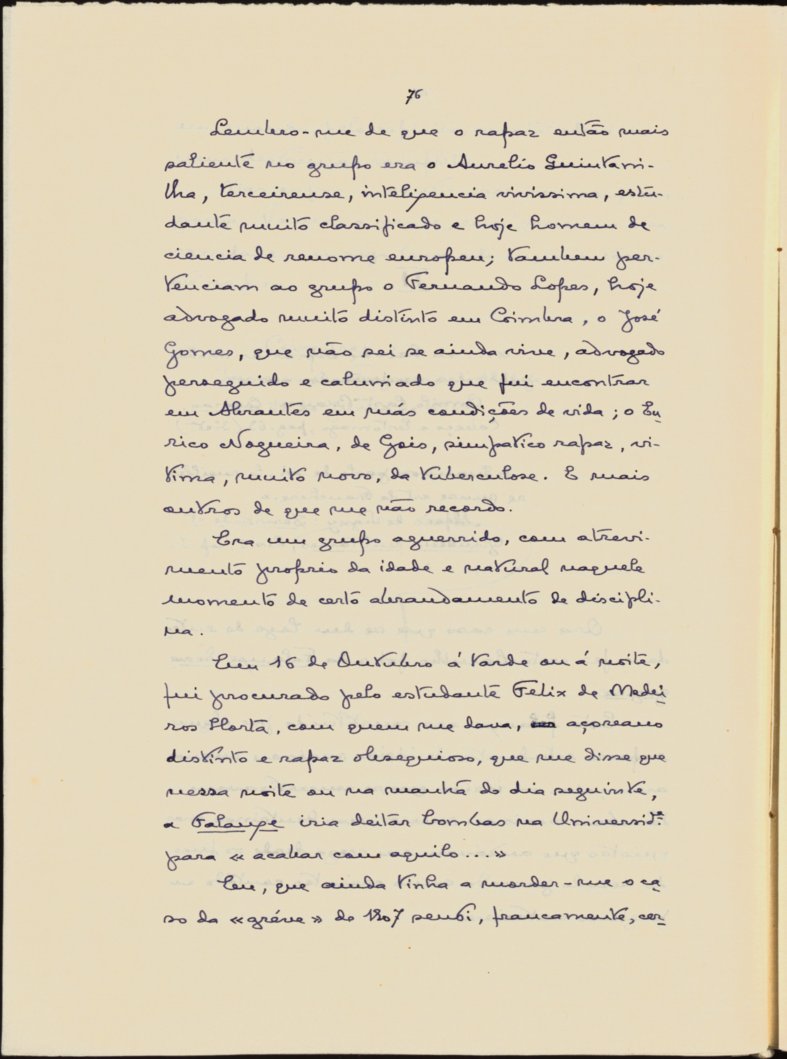 76
Lembro-me de que o rapaz então mais
saliente no grupo era o Aurelio Quintani-
lha, terceirense, inteligencia vivissima, estu-
dante muito classificado e hoje homem de
ciencia de renome europeu; tambem per-
tenciam ao grupo o Fernando Lopes, hoje
advogado muito distinto em Coimbra, o José
Gomes, que não sei se ainda vive, advogado
perseguido e caluniado que fui encontrar
em Abrantes em más condições de vida; o Eu-
rico Nogueira, de Gois, simpatico rapaz, vi-
tima, muito novo, da tuberculose. E mais
outros de que me não recordo.
Era um grupo aguerrido, com atrevi-
mento proprio da idade e natural naquele
momento de certo abrandamento de discipli-
na.
Em 16 de Outubro á tarde ou á noite,
fui procurado pelo estudante Felix de Medei-
ros Horta, com quem me dava, açoreano
distinto e rapaz obsequioso, que me disse que
nessa noite ou na manhã do dia seguinte,
a Falange iria deitar bombas na Universid.e
para «acabar com aquilo...»
Eu, que ainda tinha a morder-me o ca-
so da «gréve» de 1907 senti, francamente, cer-